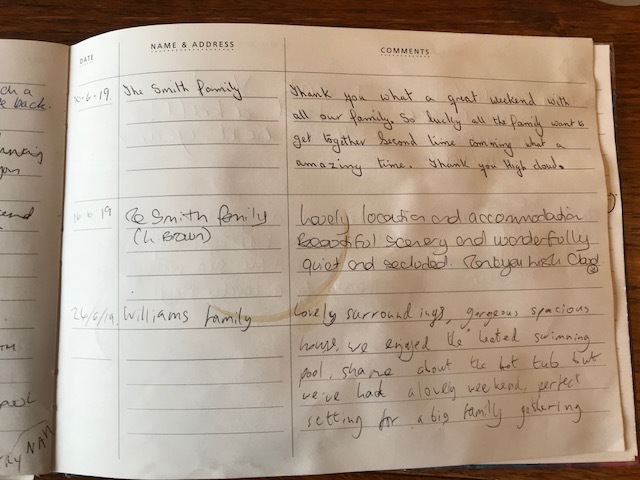 DATE NAME & ADDRESS COMMENTS
10-6-19. The Smith family Thank you what a great weekend with
all our family. So lucky all the family want to
get together second time comming what a
amazing time. Thank you High cloud.
19 The Smith family Lovely location and accommodation
(L. Brown) Beautiful scenery and wonderfully
quiet and secluded. Thankyou High Cloud
24/6/19. Williams family Lovely surroundings, gorgeous spacious
house, we enjoyed the heated swimming
pool, shame about the hot tub but
we've had a lovely weekend, perfect
setting for a big family gathering
back.
NAN